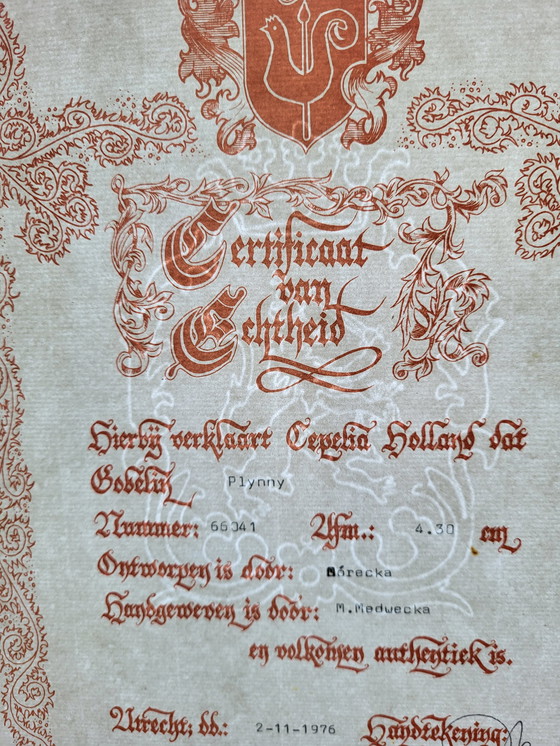 Certificaat
van
Echtheid
Hierbij verklaart Cepelia Holland dat
Gobelin Plynny
Nummer: 66041 Afm.: 4.30 em
Ontworpen is door: Górecka
Handgeweven is door: M.Medwecka
en volkomen authentiek is.
Utrecht, dd.: 2-11-1976 Handtekening: